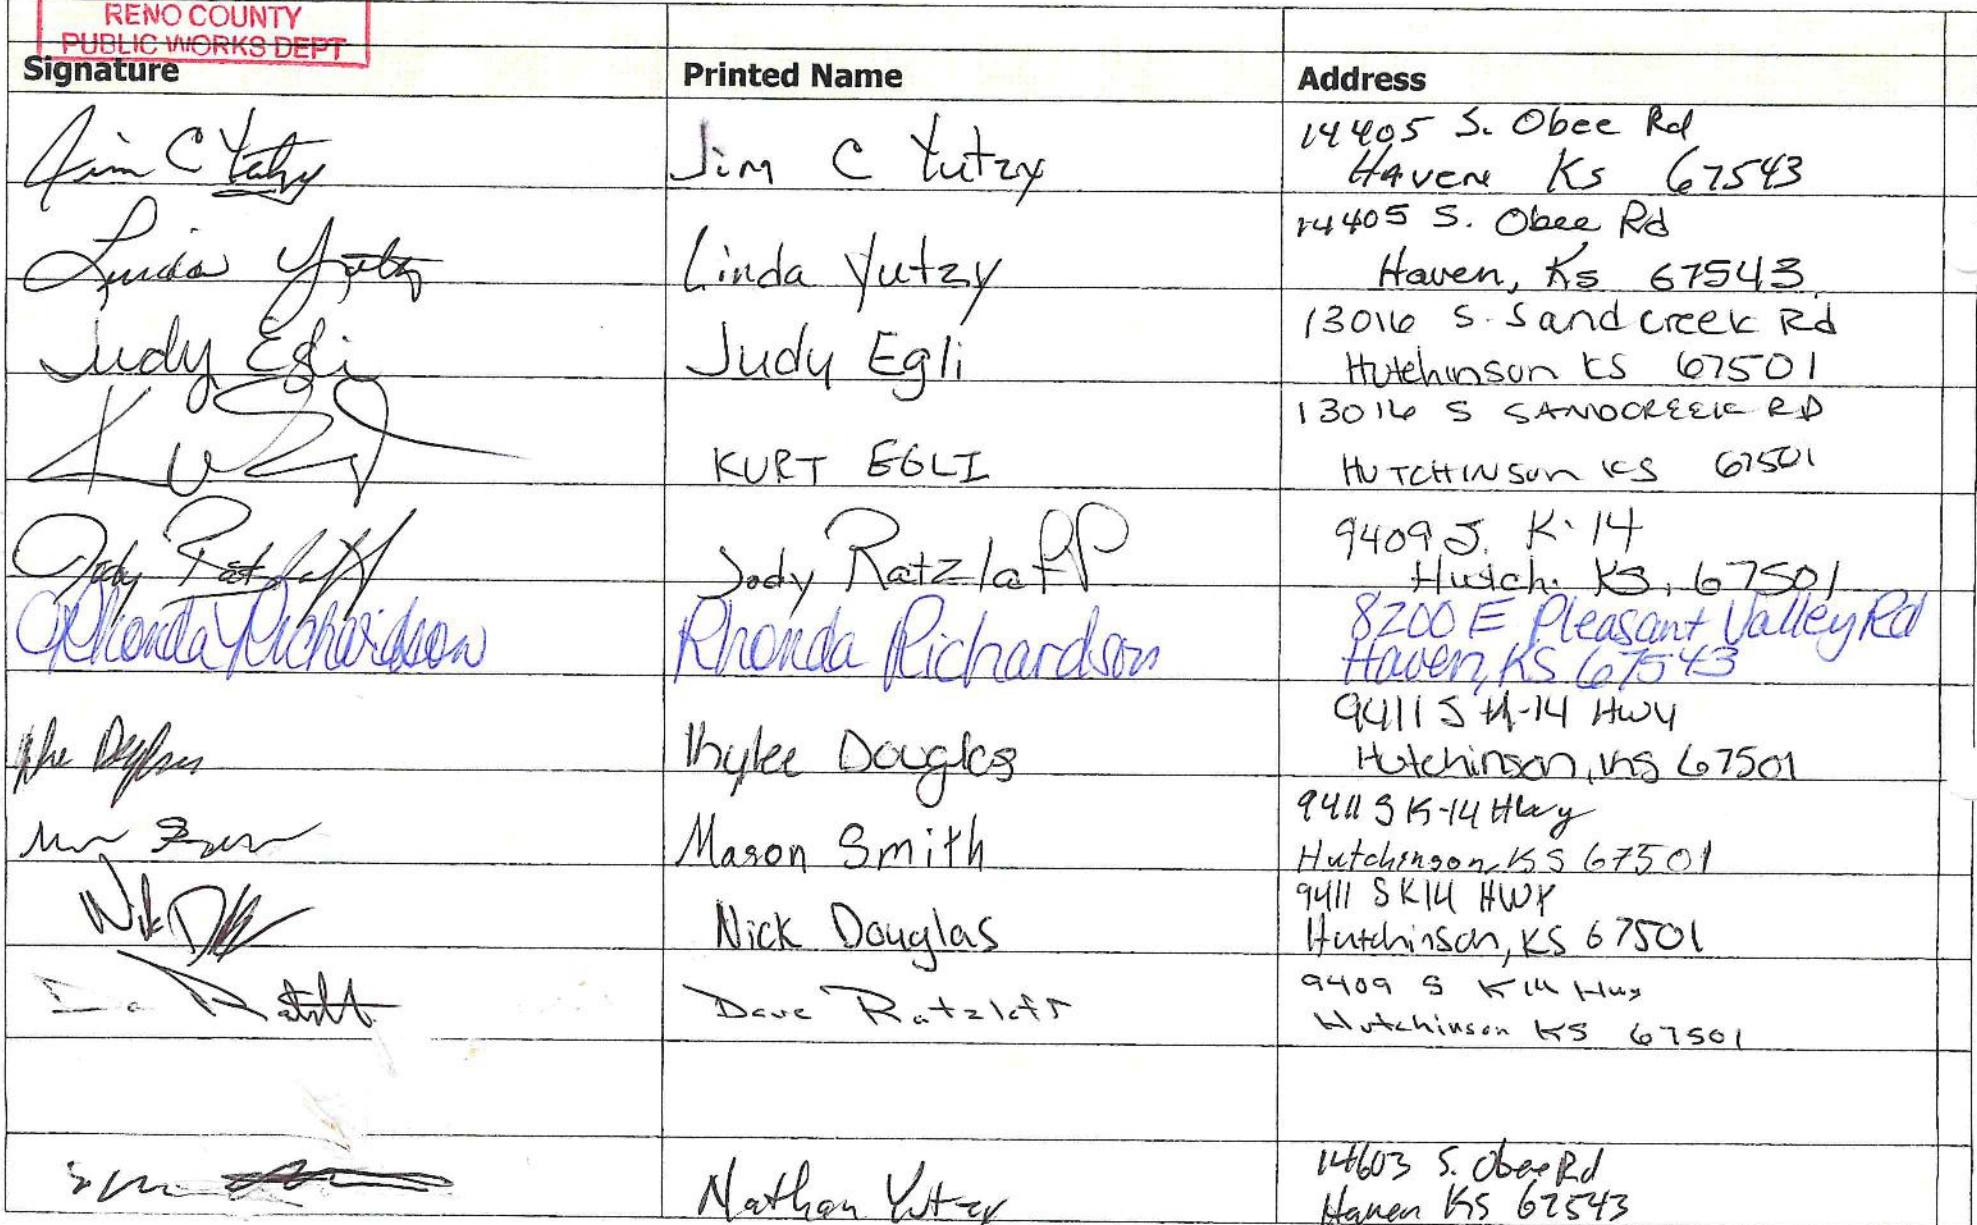 RENO COUNTY
PUBLIC WORKS DEPT
Signature Printed Name Address
Jim C Yutzy Jim C Yutzy 14405 S. Obee Rd
Haven Ks 67543
Linda Yutzy Linda Yutzy 14405 S. Obee Rd
Haven, Ks 67543
Judy Egli Judy Egli 13016 S. Sandcreek Rd
Hutchinson KS 67501
KURT EGLI 13016 S SANDCREEK RD
HUTCHINSON KS 67501
Jody Ratzlaff Jody Ratzlaff 9409 S. K-14
Hutch. KS, 67501
Rhonda Richardson Rhonda Richardson 8200 E Pleasant Valley Rd
Haven, KS 67543
Kylee Douglas 9411 S K-14 Hwy
Hutchinson, KS 67501
Mason Smith 9411 S K-14 Hwy
Hutchinson, KS 67501
Nick Nick Douglas 9411 S K14 HWY
Hutchinson, KS 67501
Dave Ratzlaff 9409 S K14 Hwy
Hutchinson KS 67501
Nathan Yutzy 14603 S. Obee Rd
Haven KS 67543